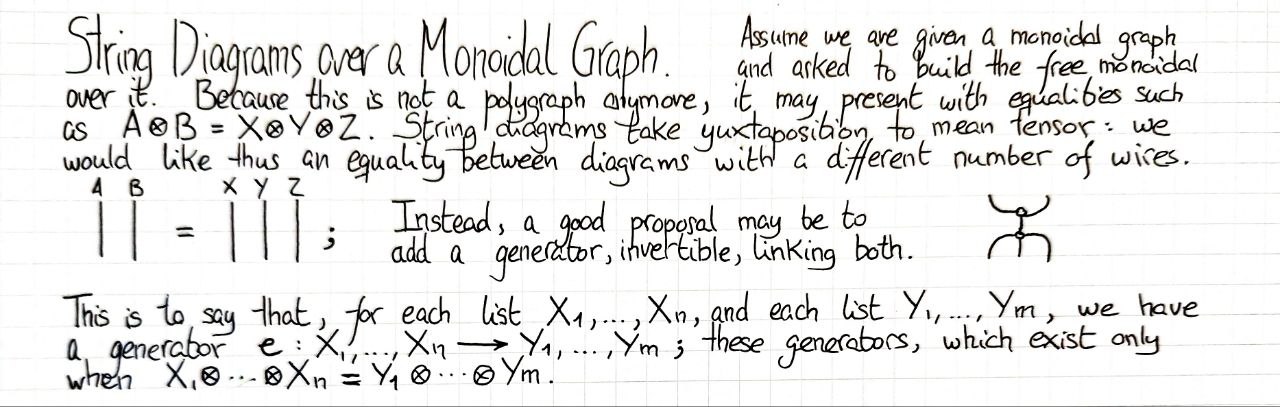 String Diagrams over a Monoidal Graph.
Assume we are given a monoidal graph
and asked to build the free monoidal
over it. Because this is not a polygraph anymore, it may present with equalities such
as A⊗B = X⊗Y⊗Z. String diagrams take yuxtaposition to mean tensor: we
would like thus an equality between diagrams with a different number of wires.
A B X Y Z
= ;
Instead, a good proposal may be to
add a generator, invertible, linking both.
This is to say that, for each list X₁,..., Xn, and each list Y₁,..., Ym, we have
a generator e : X₁,..., Xn → Y₁,..., Ym ; these generators, which exist only
when X₁⊗···⊗Xn = Y₁⊗···⊗Ym.